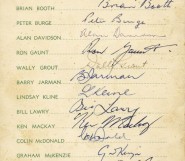 BRIAN BOOTH Brian Booth
PETER BURGE Peter Burge
ALAN DAVIDSON
RON GAUNT Ron Gaunt
WALLY GROUT Wally Grout
BARRY JARMAN B Jarman
LINDSAY KLINE
BILL LAWRY Bill Lawry
KEN MACKAY Ken Mackay
COLIN McDONALD
GRAHAM McKENZIE